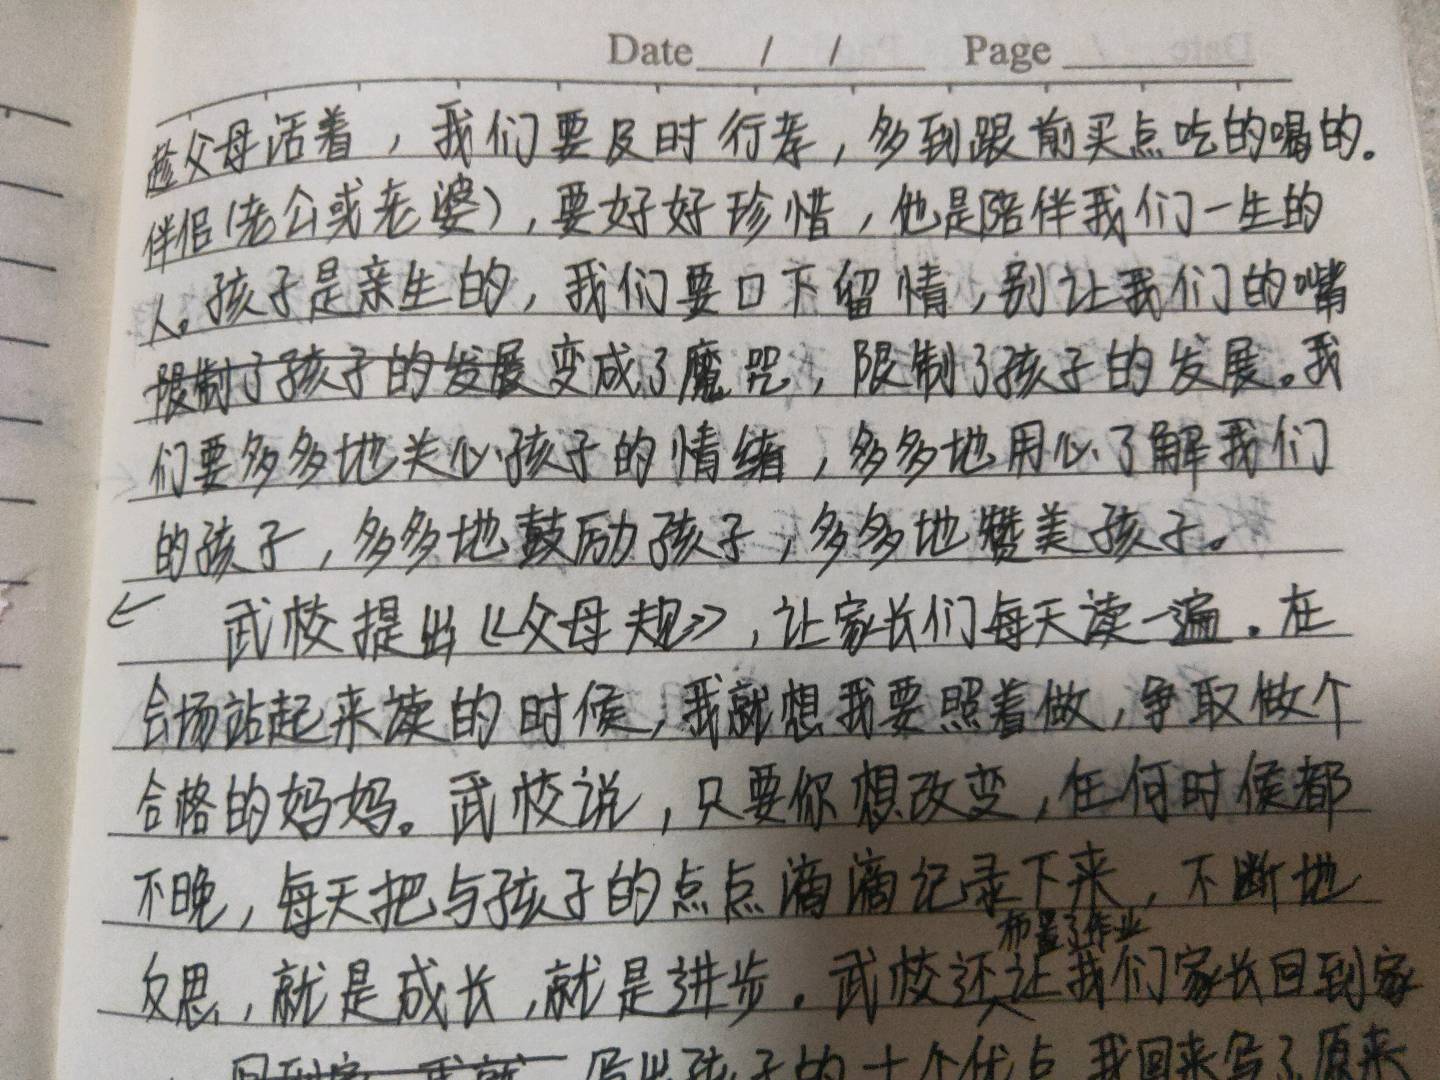 Date / / Page
趁父母活着，我们要及时行孝，多到跟前买点吃的喝的。
伴侣(老公或老婆)，要好好珍惜，他是陪伴我们一生的
人。孩子是亲生的，我们要口下留情，别让我们的嘴
限制了孩子的发展变成了魔咒，限制了孩子的发展。我
们要多多地关心孩子的情绪，多多地用心了解我们
的孩子，多多地鼓励孩子，多多地赞美孩子。
武校提出《父母规》，让家长们每天读一遍。在
会场站起来读的时候，我就想我要照着做，争取做个
合格的妈妈。武校说，只要你想改变，任何时候都
不晚，每天把与孩子的点点滴滴记录下来，不断地
布置了作业
反思，就是成长，就是进步。武校还让我们家长回到家
回到家 我就 写出孩子的十个优点 我回来写了原来